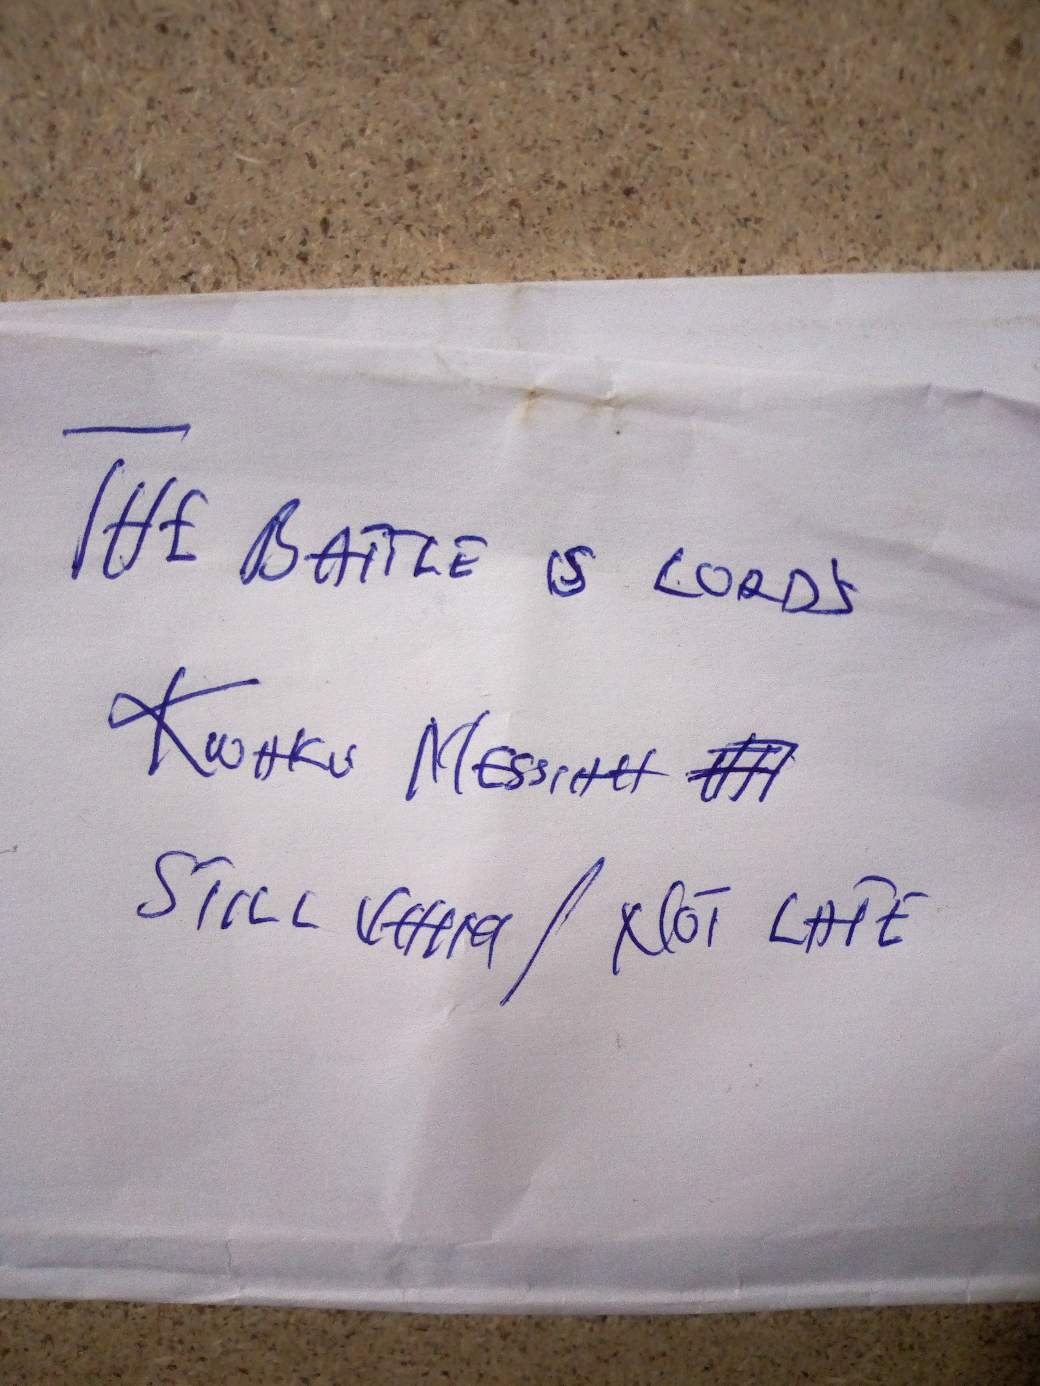 THE BATTLE IS LORD'S
KWAKU MESSIAH
STILL / NOT LATE